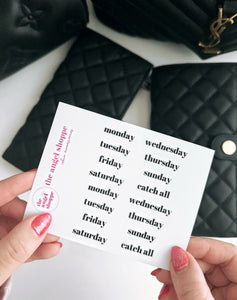 the angel shoppe
the
angel
shoppe
monday
tuesday
friday
saturday
monday
tuesday
friday
saturday
wednesday
thursday
sunday
catch all
wednesday
thursday
sunday
catch all